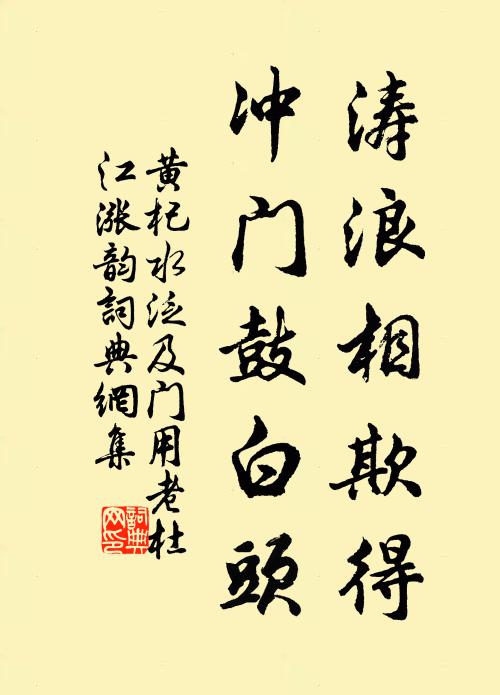 涛浪相欺得
冲门鼓白頭
黄杞水泛及门用老杜
江涨韵詞典網集
詞典网印